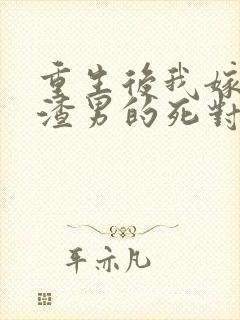 重生後我嫁
渣男的死對
平亦凡